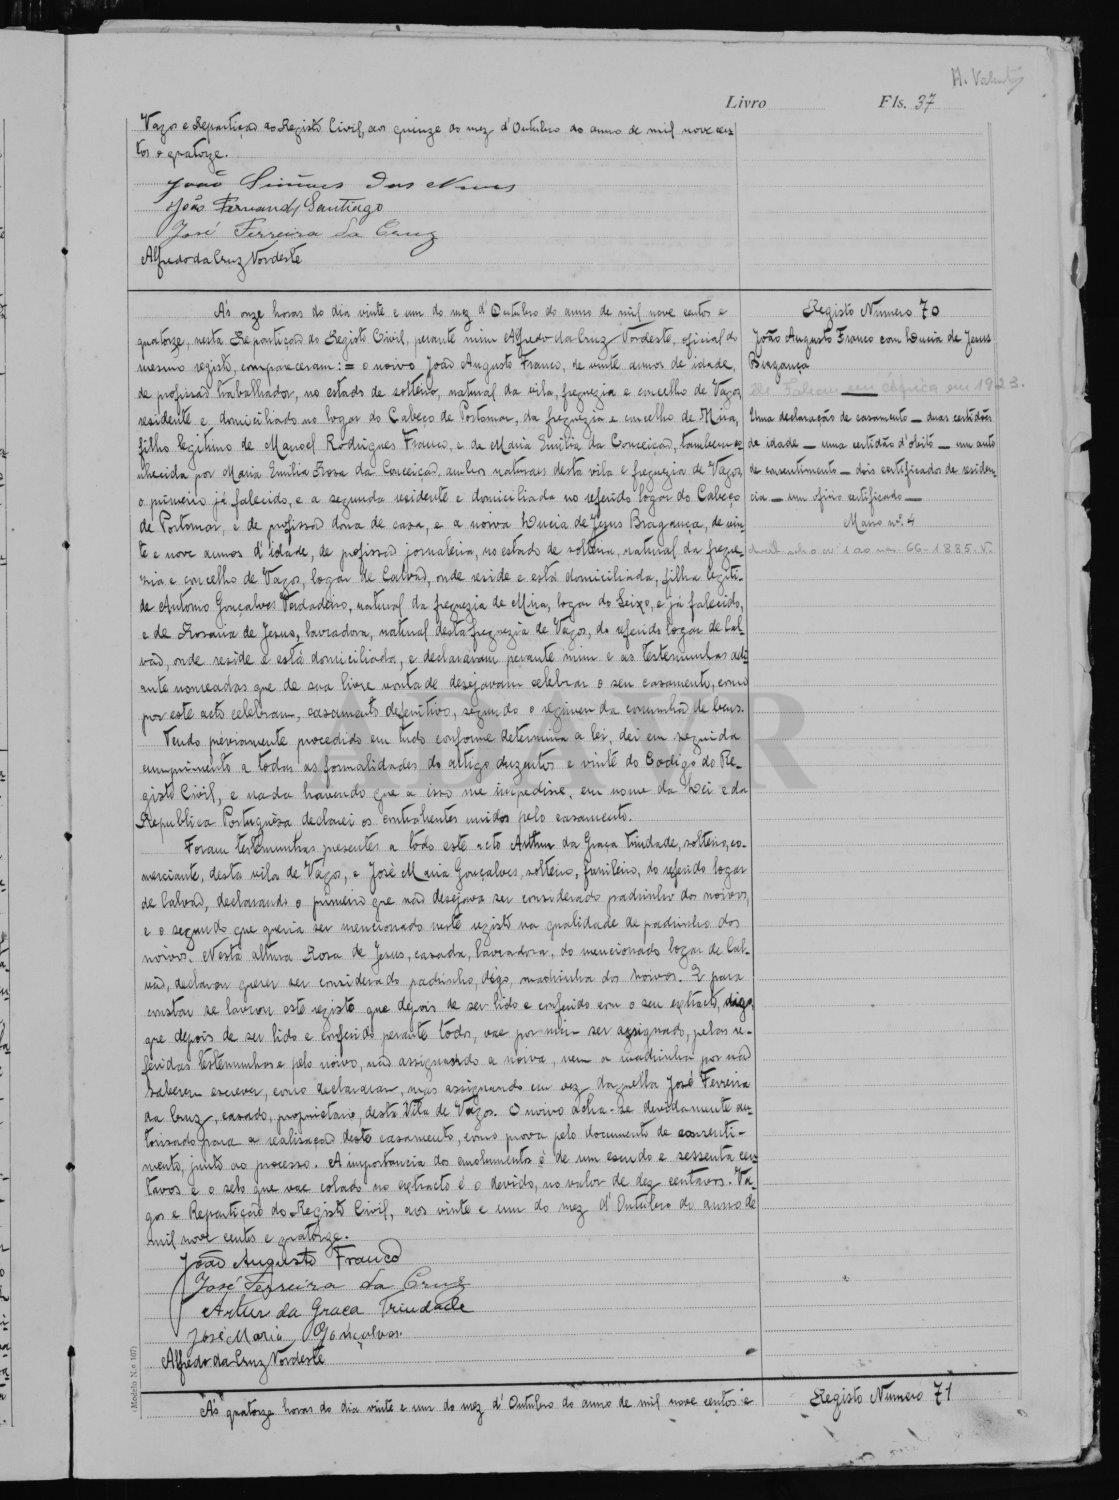 H. Valentim
Livro Fls. 37
Vagos e Repartição do Registo Civil, aos quinze do mez d'Outubro do anno de mil nove cen-
tos e quatorze.
João Simões das Neves
João Fernandes Santiago
José Ferreira da Cruz
Alfredo da Cruz Nordeste
Ás onze horas do dia vinte e um do mez d'Outubro do anno de mil nove centos e
quatorze, nesta Repartição do Registo Civil, perante mim Alfredo da Cruz Nordeste, oficial do
mesmo registo, compareceram: = o noivo João Augusto Franco, de vinte annos de idade,
de profissão trabalhador, no estado de solteiro, natural da vila, freguezia e concelho de Vagos,
residente e domiciliado no logar do Cabeço de Portomar, da freguezia e concelho de Mira,
filho legitimo de Manoel Rodrigues Franco, e de Maria Emilia da Conceição, tambem co-
nhecida por Maria Emilia Rosa da Conceição, ambos naturaes desta vila e freguezia de Vagos,
o primeiro já falecido, e a segunda residente e domiciliada no referido logar do Cabeço
de Portomar, e de profissão dona de casa, e a noiva Lucia de Jesus Bragança, de vin-
te e nove annos d'idade, de profissão jornaleira, no estado de solteira, natural da fregue-
zia e concelho de Vagos, logar de Calvão, onde reside e está domiciliada, filha legiti-
de Antonio Gonçalves Verdadeiro, natural da freguezia de Mira, logar do Seixo, e já falecido,
e de Rosaria de Jesus, lavradora, natural desta freguezia de Vagos, do referido logar de Cal-
vão, onde reside e está domiciliada, e declararam perante mim e as testemunhas adi-
ante nomeadas que de sua livre vontade desejavam celebrar o seu casamento, como
por este acto celebram, casamento definitivo, segundo o regimen da comunhão de bens.
Tendo préviamente procedido em tudo conforme determina a lei, dei em seguida
cumprimento a todas as formalidades do artigo duzentos e vinte do Codigo do Re-
gisto Civil, e nada havendo que a isso me impedisse, em nome da Lei e da
Republica Portuguêsa declarei os contrahentes unidos pelo casamento.
Foram testemunhas presentes a todo este acto Arthur da Graça Trindade, solteiro, co-
merciante, desta vila de Vagos, e José Maria Gonçalves, solteiro, funileiro, do referido logar
de Calvão, declarando o primeiro que não desejava ser considerado padrinho dos noivos,
e o segundo que queria ser mencionado neste registo na qualidade de padrinho dos
noivos. Nesta altura Rosa de Jesus, casada, lavradora, do mencionado logar de Cal-
vão, declarou querer ser considerado padrinho, digo, madrinha dos noivos. E para
constar se lavrou este registo que depois de ser lido e conferido com o seu extracto, digo,
que depois de ser lido e conferido perante todos, vae por mim ser assignado, pelas re-
feridas testemunhas e pelo noivo, não assignando a noiva, nem a madrinha por não
saberem escrever, como declararam, mas assignando em vez daquella José Ferreira
da Cruz, casado, proprietario, desta Vila de Vagos. O noivo acha-se devidamente au-
torisado para a realisação deste casamento, como prova pelo documento de consenti-
mento, junto ao processo. A importancia dos emolumentos é de um escudo e sessenta cen-
tavos e o selo que vae colado no extracto é o devido, no valor de dez centavos. Va-
gos e Repartição do Registo Civil, aos vinte e um do mez d'Outubro do anno de
mil nove centos e quatorze.
João Augusto Franco
José Ferreira da Cruz
Artur da Graça Trindade
José Maria Gonçalves
Alfredo da Cruz Nordeste
Registo Numero 70
João Augusto Franco com Lucia de Jesus
Bragança
Ele Faleceu em Africa em 1923.
Uma declaração de casamento — duas certidões
de idade — uma certidão d'obito — um auto
de consentimento — dois certificados de residen-
cia — um oficio certificado —
Maço nº. 4
(Modelo N.º 107)
Ás quatorze horas do dia vinte e um do mez d'Outubro do anno de mil nove centos e
Registo Numero 71